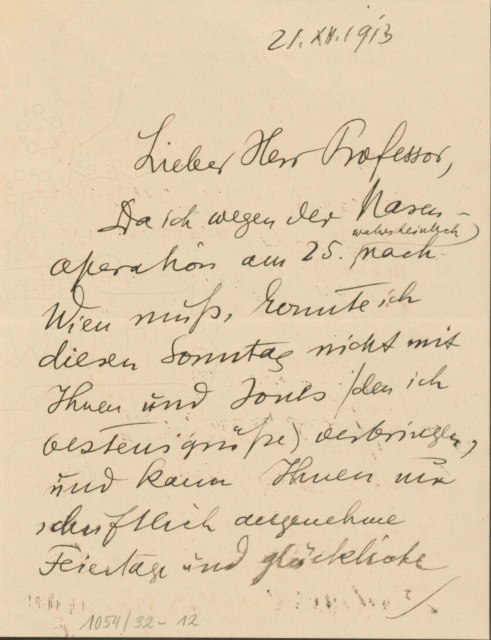 21.XII.1913
Lieber Herr Professor,
Da ich wegen der Nasen-
wahrscheinlich
operation am 25. nach
Wien muß, konnte ich
diesen Sonntag nicht mit
Ihnen und Jones (den ich
bestens grüße) verbringen,
und kann Ihnen nur
schriftlich angenehme
Feiertage und glückliche
1054/32-12